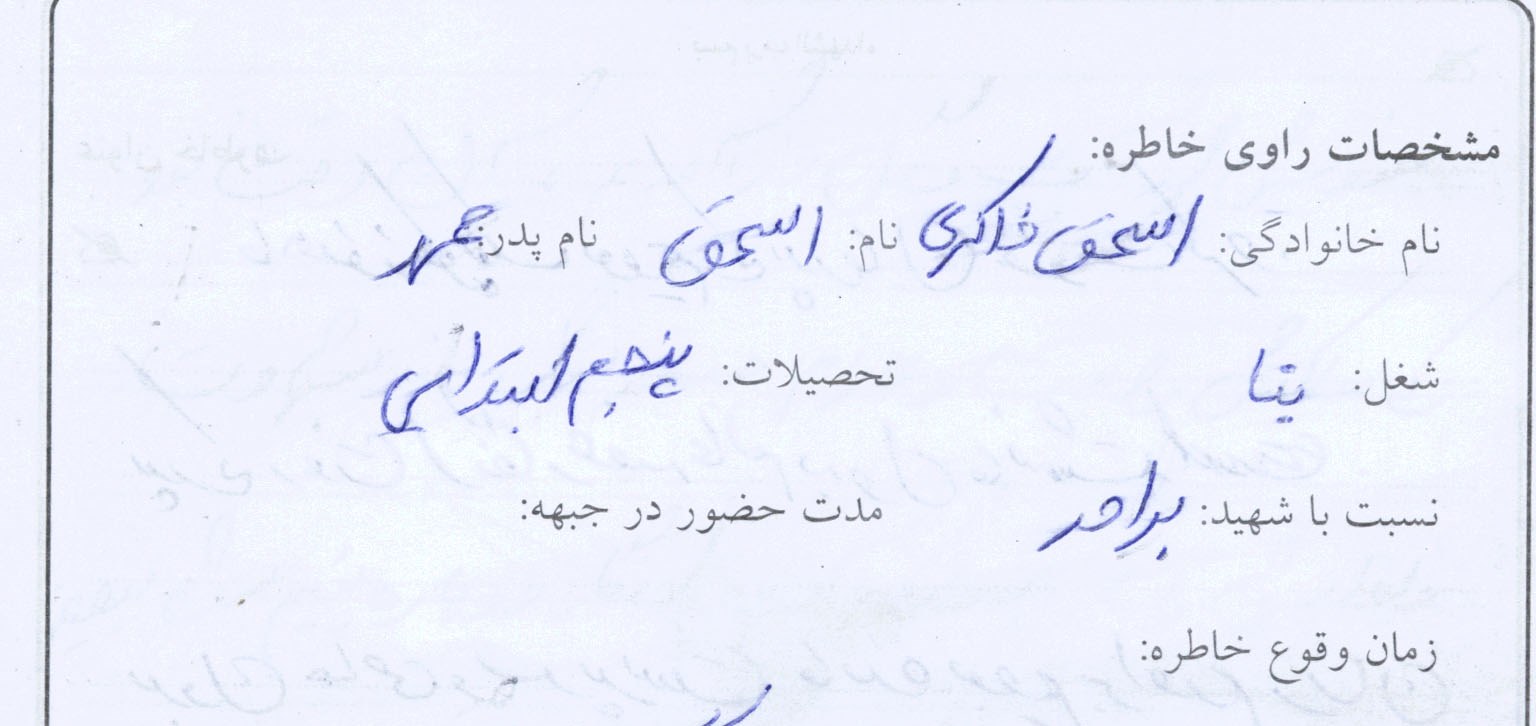 مشخصات راوی خاطره:
نام خانوادگی: اسحق ذاکری نام: اسحق نام پدر:
شغل: بنا تحصیلات: پنجم ابتدایی
نسبت با شهید: برادر مدت حضور در جبهه:
زمان وقوع خاطره: